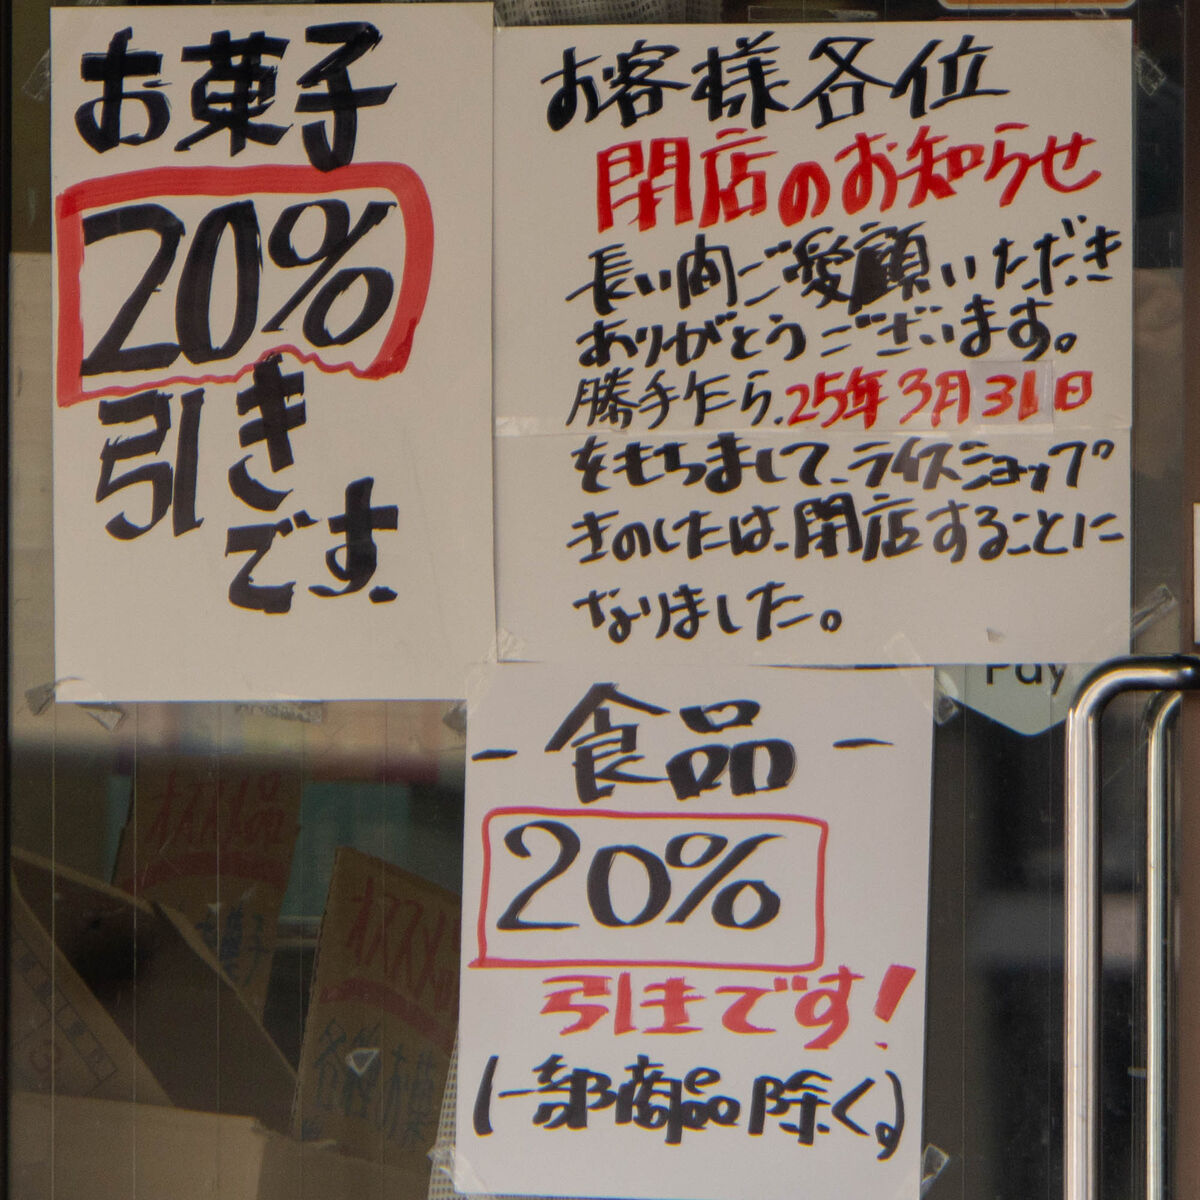 お菓子
20%
引き
です.
お客様各位
閉店のお知らせ
長い間ご愛顧いただき
ありがとうございます。
勝手乍ら、25年3月31日
をもちまして、ライスショップ
きのしたは、閉店することに
なりました。
Pay
-食品-
20%
引きです!
(一部商品除く。)
オススメ品
お菓子
オススメ
各種お菓